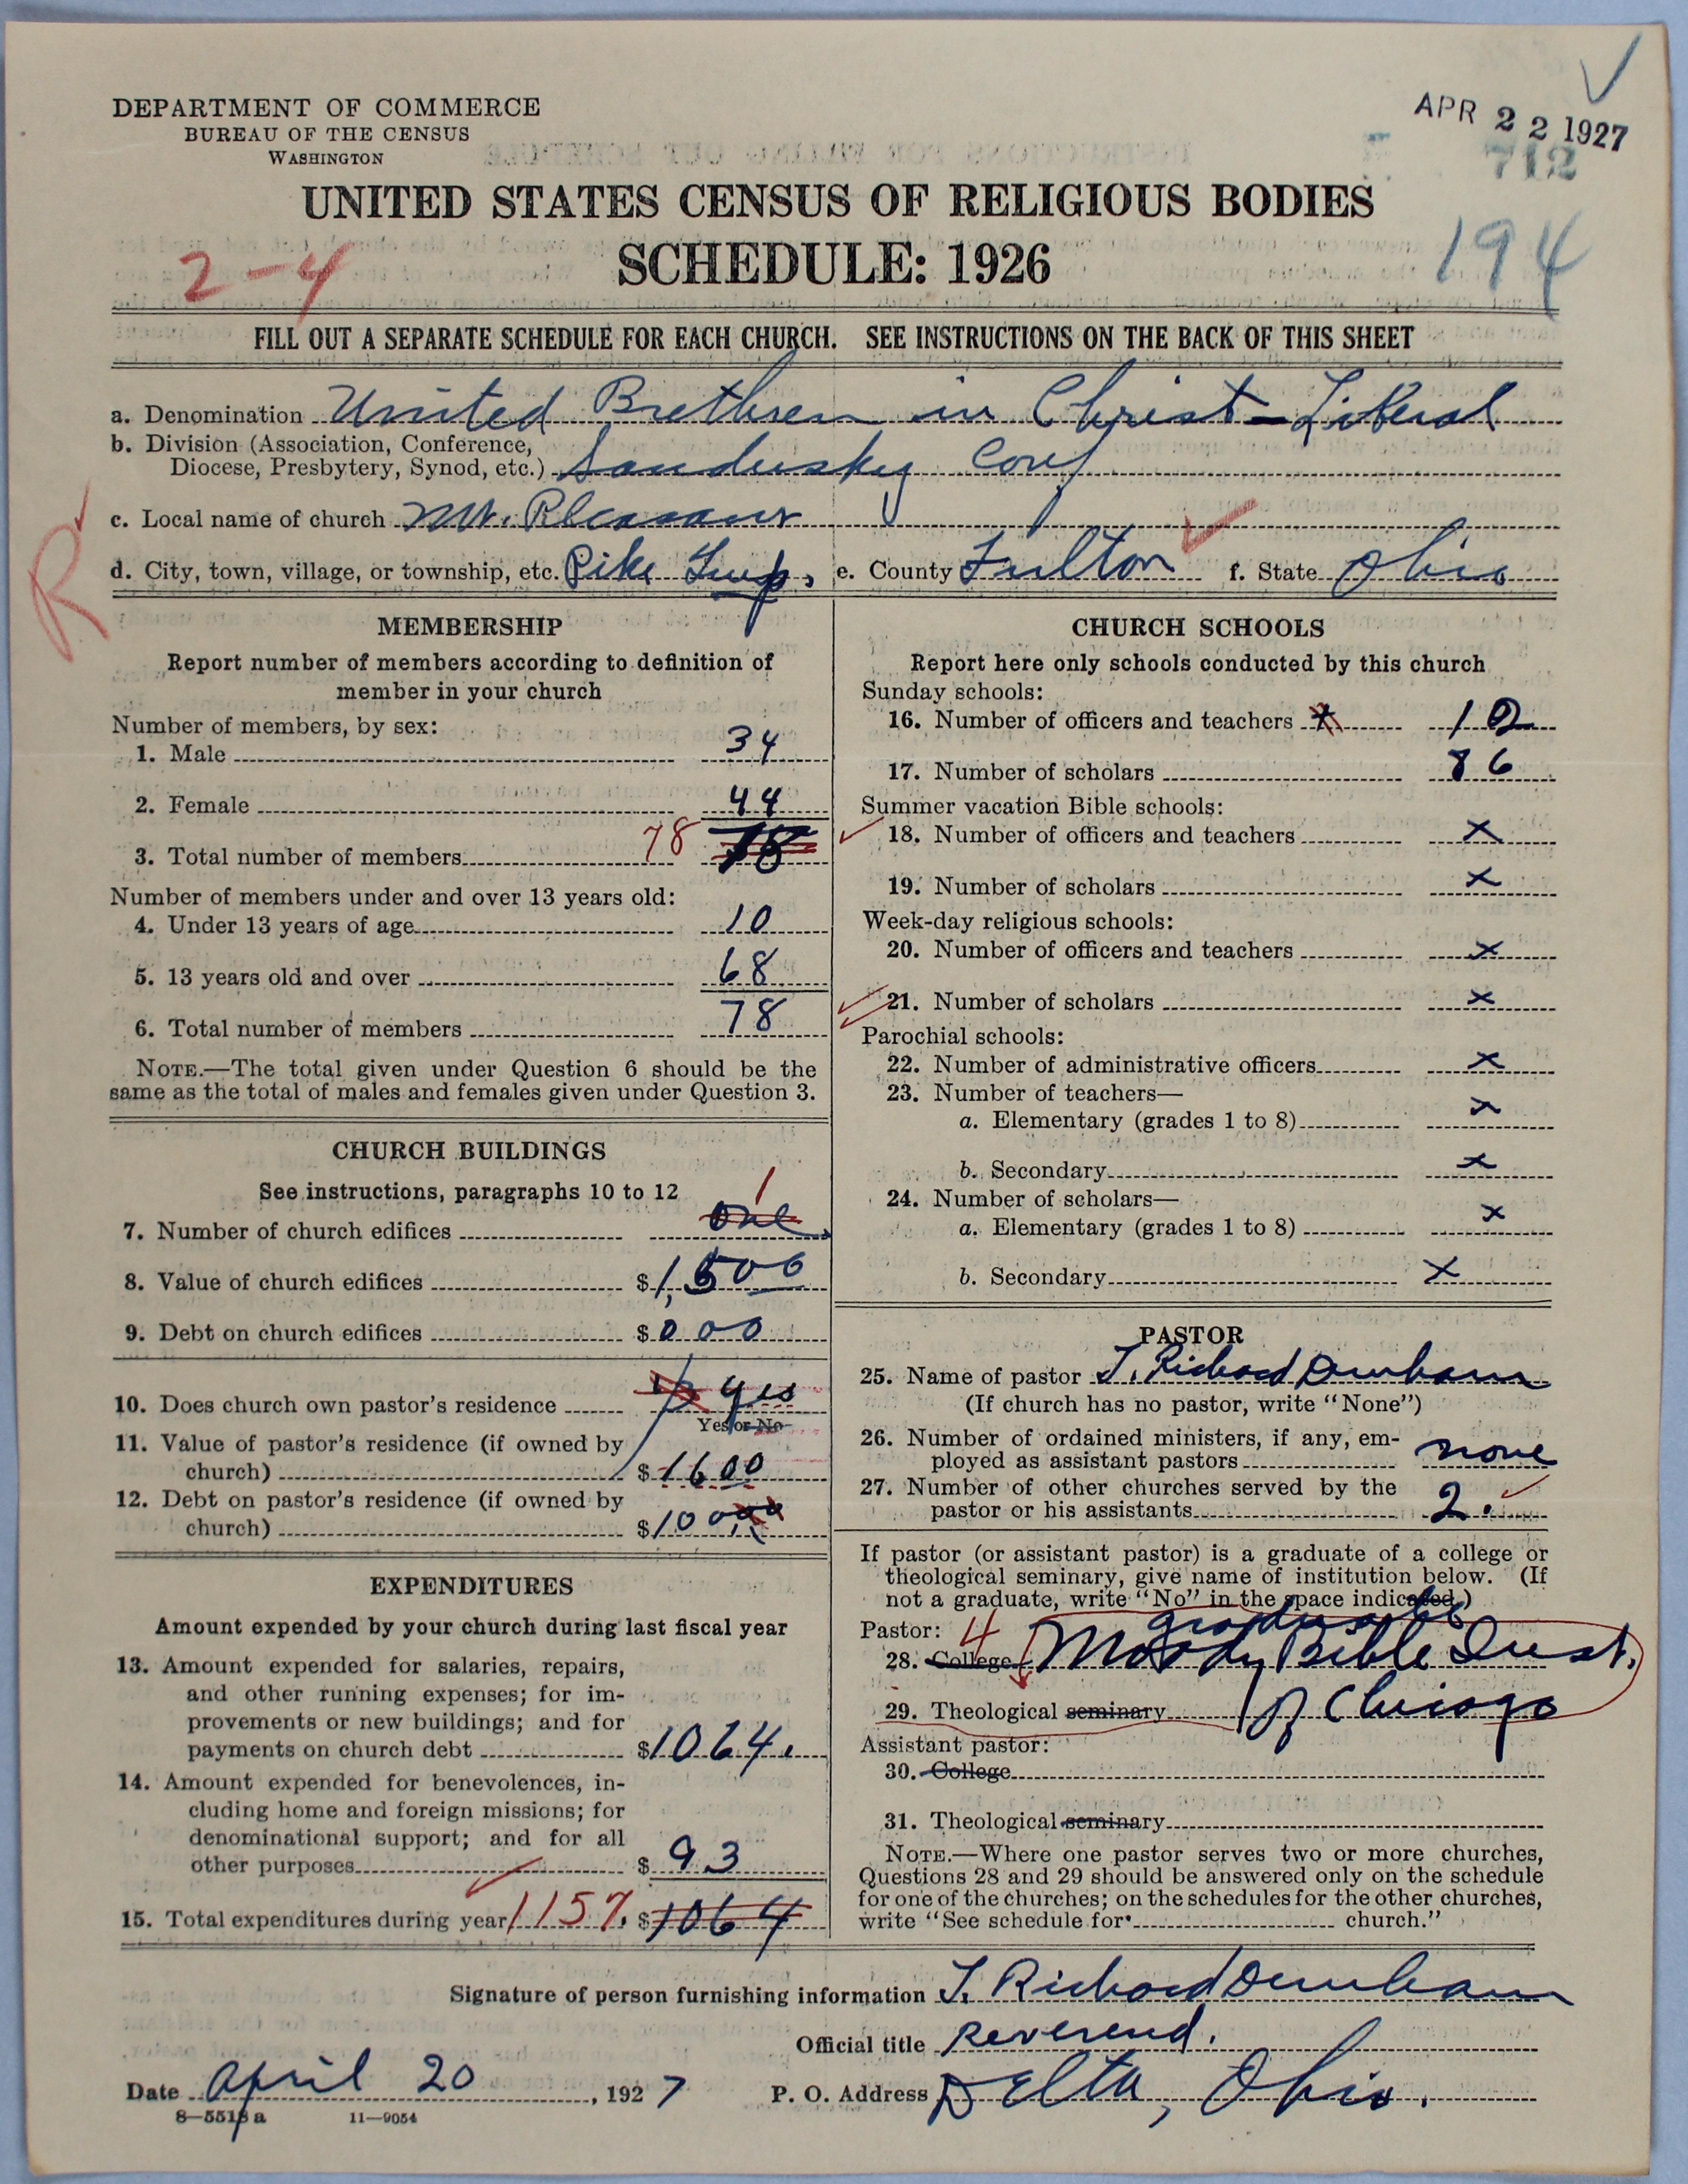 DEPARTMENT OF COMMERCE
BUREAU OF THE CENSUS
WASHINGTON
APR 22 1927
712
UNITED STATES CENSUS OF RELIGIOUS BODIES
2-4
SCHEDULE: 1926
194
FILL OUT A SEPARATE SCHEDULE FOR EACH CHURCH. SEE INSTRUCTIONS ON THE BACK OF THIS SHEET
a. Denomination United Brethren in Christ - Liberal
b. Division (Association, Conference,
Diocese, Presbytery, Synod, etc.) Sandusky Conf
R
c. Local name of church Mt. Pleasant
d. City, town, village, or township, etc. Pike Twp, e. County Fulton f. State Ohio
MEMBERSHIP
Report number of members according to definition of
member in your church
Number of members, by sex:
1. Male 34
2. Female 44
3. Total number of members 78 78
Number of members under and over 13 years old:
4. Under 13 years of age 10
5. 13 years old and over 68
6. Total number of members 78
NOTE.—The total given under Question 6 should be the
same as the total of males and females given under Question 3.
CHURCH BUILDINGS
See instructions, paragraphs 10 to 12
1
7. Number of church edifices One
8. Value of church edifices $1,500
9. Debt on church edifices $000
10. Does church own pastor's residence yes
Yes or No
11. Value of pastor's residence (if owned by
church) $1600
12. Debt on pastor's residence (if owned by
church) $100
EXPENDITURES
Amount expended by your church during last fiscal year
13. Amount expended for salaries, repairs,
and other running expenses; for im-
provements or new buildings; and for
payments on church debt $1064.
14. Amount expended for benevolences, in-
cluding home and foreign missions; for
denominational support; and for all
other purposes $93
15. Total expenditures during year 1157. $1064
CHURCH SCHOOLS
Report here only schools conducted by this church
Sunday schools:
16. Number of officers and teachers 12
17. Number of scholars 86
Summer vacation Bible schools:
18. Number of officers and teachers x
19. Number of scholars x
Week-day religious schools:
20. Number of officers and teachers x
21. Number of scholars x
Parochial schools:
22. Number of administrative officers x
23. Number of teachers—
a. Elementary (grades 1 to 8) x
b. Secondary x
24. Number of scholars—
a. Elementary (grades 1 to 8) x
b. Secondary x
PASTOR
25. Name of pastor T. Richard Dunham
(If church has no pastor, write "None")
26. Number of ordained ministers, if any, em-
ployed as assistant pastors none
27. Number of other churches served by the
pastor or his assistants 2.
If pastor (or assistant pastor) is a graduate of a college or
theological seminary, give name of institution below. (If
not a graduate, write "No" in the space indicated.)
Pastor: 4 graduate
28. College Moody Bible Inst.
29. Theological seminary of Chicago
Assistant pastor:
30. College
31. Theological seminary
NOTE.—Where one pastor serves two or more churches,
Questions 28 and 29 should be answered only on the schedule
for one of the churches; on the schedules for the other churches,
write "See schedule for church."
Signature of person furnishing information T. Richard Dunham
Official title Reverend.
Date April 20, 1927 P. O. Address Delta, Ohio.
8—5518 a 11—9054